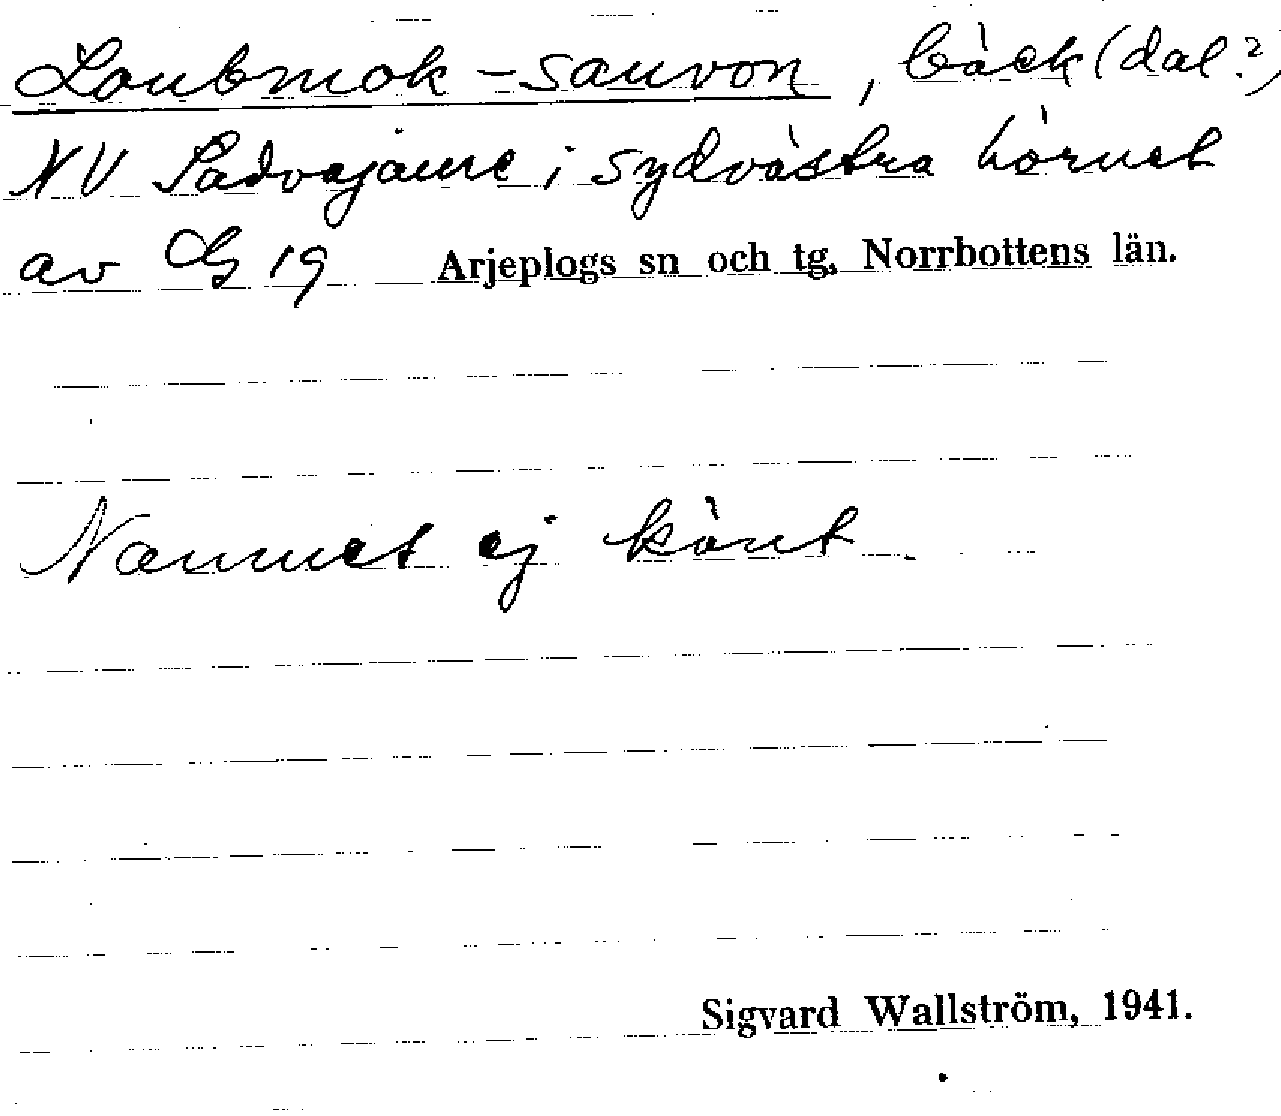 Loubmok-sauvon, bäck (dal?)
NV Sädvajaure i sydvästra hörnet
av G 19 Arjeplogs sn och tg, Norrbottens län.
Namnet ej känt
Sigvard Wallström, 1941.